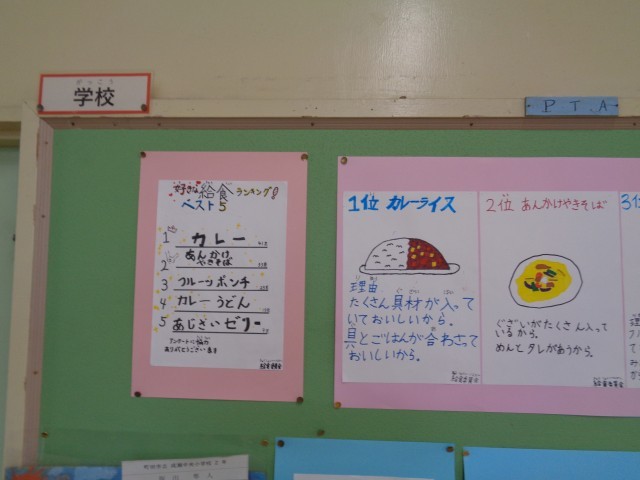 がっこう
学校
P T A
好きな給食ランキング!
ベスト5
1 カレー
2 あんかけ
やきそば
3 フルーツポンチ
4 カレーうどん
5 あじさいゼリー
アンケートに協力
ありがとうございます
給食委員会
1位 カレーライス
理由
たくさん具材が入って
いておいしいから。
具とごはんが合わさって
おいしいから。
給食委員会
2位 あんかけやきそば
ぐざいがたくさん入って
いるから。
めんとタレがあうから。
給食委員会
3位